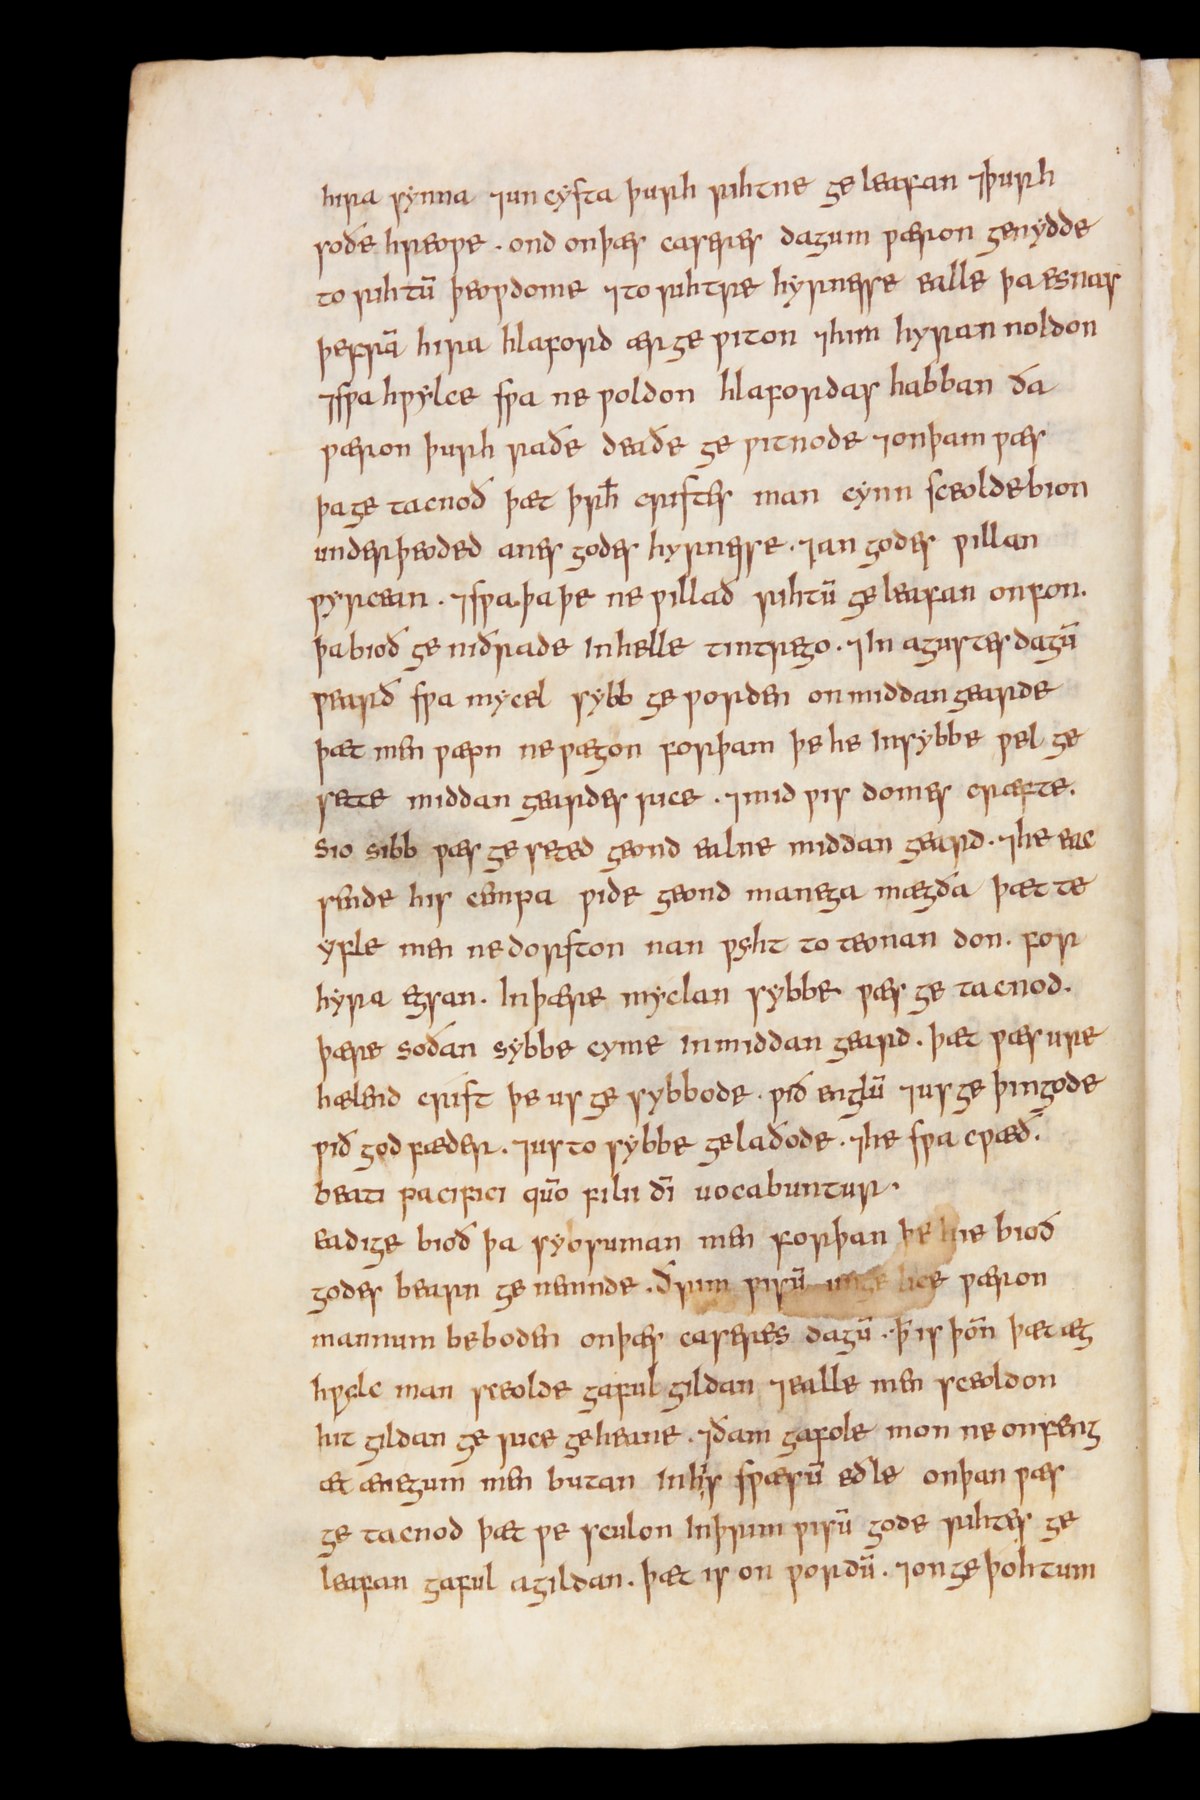 hira synna ⁊ uncysta þurh rihtne geleafan ⁊ þurh
soðe hreoƿe . ond onþæs caseres dagum ƿæron genydde
to rihtū þeoƿdome ⁊ to rihtre hyrnesse ealle þa esnas
þefrā hira hlaford ær geƿiton ⁊ him hyran noldon
⁊ sƿa hƿylce sƿa ne ƿoldon hlafordas habban ða
ƿæron þurh raðe deaðe geƿitnode ⁊ onþam ƿæs
þa getacnoð þæt þrh̄ cristes man cynn sceolde bion
underþeoded anes godes hyrnesse . ⁊ an godes ƿillan
ƿyrcean . ⁊ sƿa þa þe ne ƿillað rihtū geleafan onfon.
þa bioð geniðrade in helle tintrego . ⁊ In agustes dagū
ƿearð sƿa mycel sybb geƿorden on middangearde
þæt men ƿæƿn ne ƿægon forþam þe he In sybbe ƿel ge
sette middangeardes rice . ⁊ mid ƿis domes cræfte.
sio sibb ƿæs geseted geond ealne middangeard . ⁊ he eac
sende his cempa ƿide geond manega mægða þæt te
yfle men ne dorston nan ƿyht to teonan don . for
hyra egsan . In þære myclan sybbe ƿæs getacnod.
þære soðan sybbe cyme In middangeard . þæt ƿæs ure
hælend crist þe us gesybbode . ƿið englū ⁊ us geþingode
ƿið god fæder . ⁊ us to sybbe gelaðode . ⁊ he sƿa cƿæð.
beati pacifici qūo filii dī uocabuntur.
eadige bioð þa sybsuman men forþan þe hie bioð
godes bearn genemnde . ðrim ƿisū ungelice ƿæron
mannum beboden onþæs caseres dagū . þ̄ is þōn þæt æg
hƿylc man sceolde gaful gildan ⁊ ealle men sceoldon
hit gildan ge rice ge heane . ⁊ ðam gafole mon ne onfeng
æt ænegum men butan In his sƿæsū eðle onþan ƿæs
getacnod þæt ƿe sculon In þrim ƿisū gode rihtes ge
leafan gaful agildan . þæt is on ƿordū . ⁊ on geþohtum